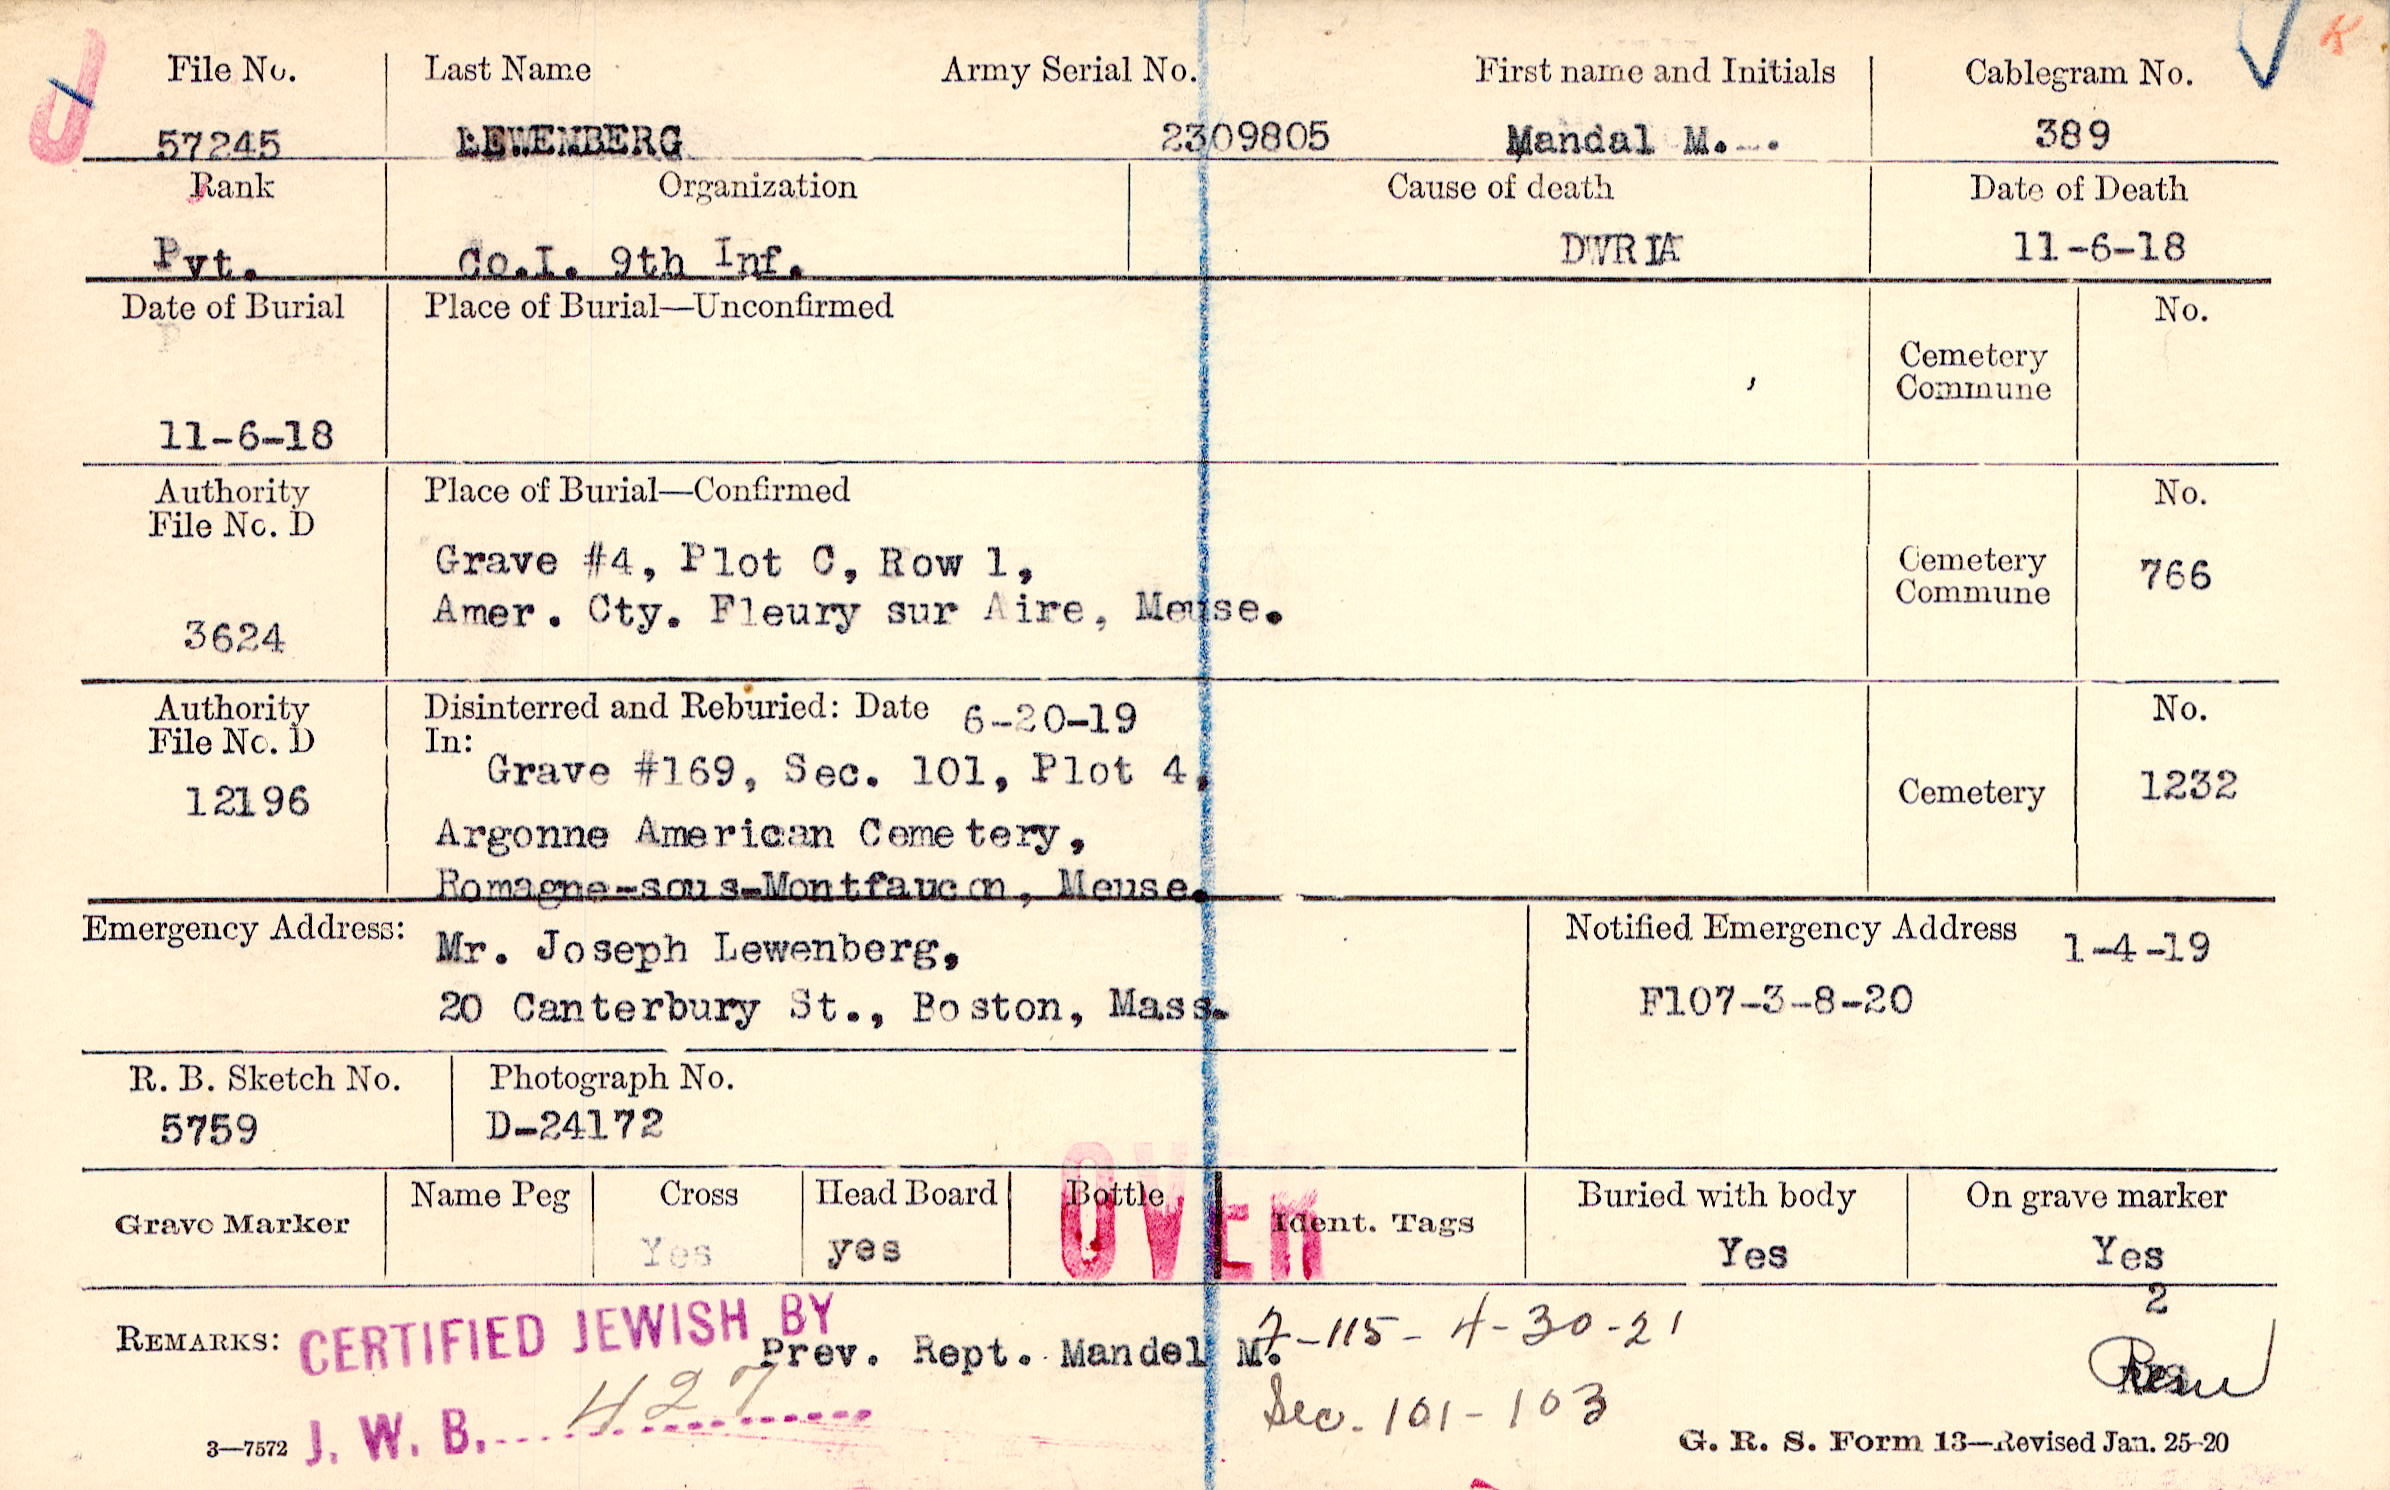 File No. Last Name Army Serial No. First name and Initials Cablegram No.
57245 LEWENBERG 2309805 Mandal M. 389
Rank Organization Cause of death Date of Death
Pvt. Co.I. 9th Inf. DWRIA 11-6-18
Date of Burial Place of Burial—Unconfirmed No.
Cemetery
Commune
11-6-18
Authority Place of Burial—Confirmed No.
File No. D
Grave #4, Plot C, Row 1, Cemetery 766
Commune
Amer. Cty. Fleury sur Aire, Meuse.
3624
Authority Disinterred and Reburied: Date 6-20-19 No.
File No. D In:
Grave #169, Sec. 101, Plot 4,
12196 Cemetery 1232
Argonne American Cemetery,
Romagne-sous-Montfaucon, Meuse.
Emergency Address: Mr. Joseph Lewenberg, Notified Emergency Address 1-4-19
20 Canterbury St., Boston, Mass. F107-3-8-20
R. B. Sketch No. Photograph No.
5759 D-24172
OVER
Name Peg Cross Head Board Bottle Buried with body On grave marker
Grave Marker Ident. Tags
Yes yes Yes Yes
2
CERTIFIED JEWISH BY 7-115- 4-30-21
REMARKS: Prev. Rept. Mandel M.
J. W. B. 427 Sec. 101-103
3—7572 G. R. S. Form 13—Revised Jan. 25-20